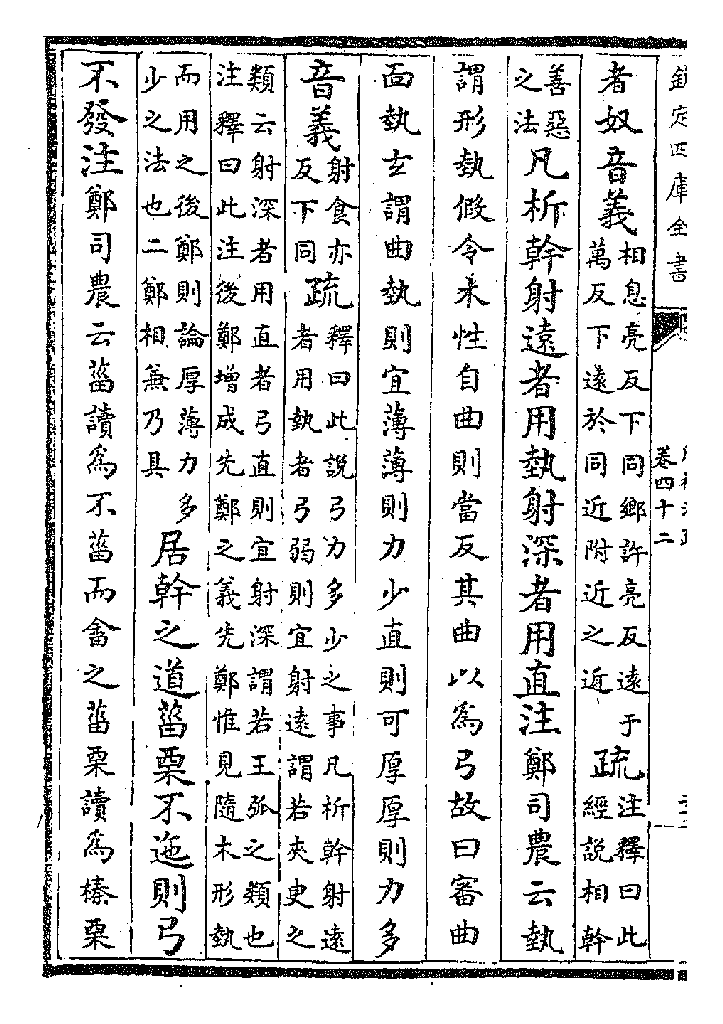 欽定四庫全書
卷四十二
者奴音義相息亮反下同鄉許亮反遠于
萬反下遠於同近附近之近疏注釋曰此
經說相幹
善惡
之法凡析幹射遠者用埶射深者用直注鄭司農云埶
謂形埶假令木性自曲則當反其曲以為弓故曰審曲
面埶玄謂曲埶則宜薄薄則力少直則可厚厚則力多
音義射食亦
反下同疏釋曰此說弓力多少之事凡析幹射遠
者用埶者弓弱則宜射遠謂若夾史之
類云射深者用直者弓直則宜射深謂若王弧之類也
注釋曰此注後鄭增成先鄭之義先鄭惟見隨木形埶
而用之後鄭則論厚薄力多
少之法也二鄭相兼乃具居幹之道菑栗不迤則弓
不發注鄭司農云菑讀為不菑而畬之菑栗讀為榛栗